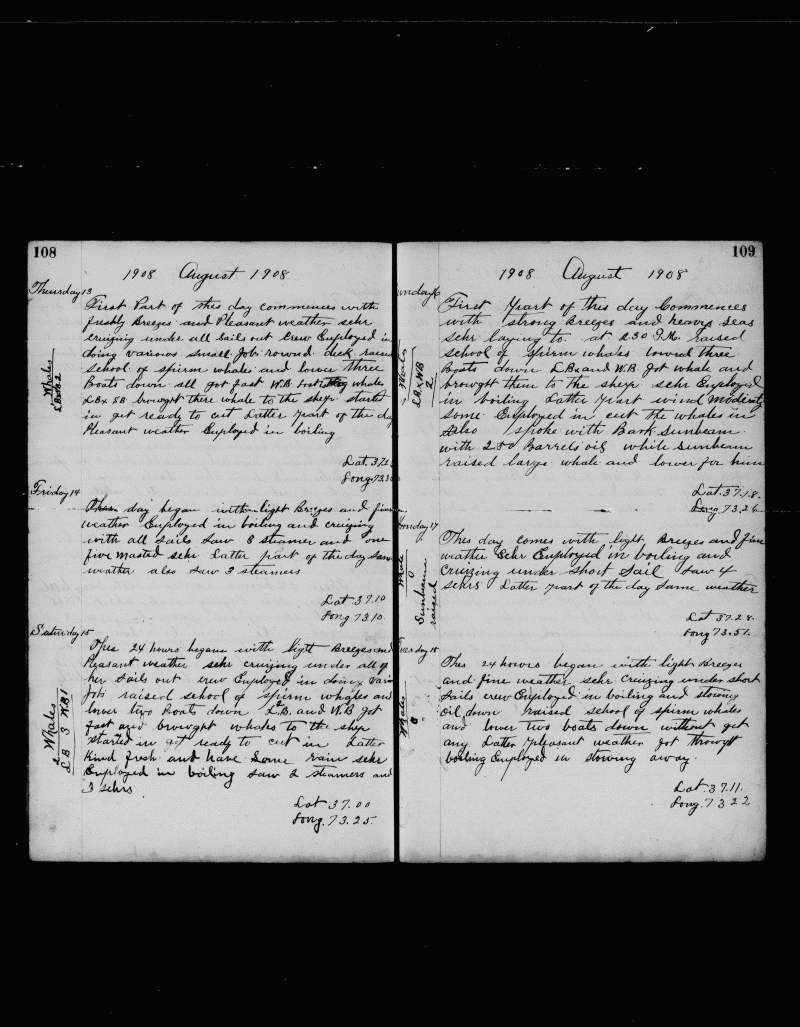 108
1908 August 1908
Thursday 13
First Part of this day commences with
freshly Breeges and Pleasant weather sehr
cruizing under all Sails out Crew Employed in
doing various small Job round deck raised
school of spirm whale and lower three
Boats down all got fast W.B lost whale
LB x SB brought there whale to the ship started
in get ready to cut Latter part of the day
Pleasant weather Employed in boiling
Whales
Lat. 37.1
Long 73.30
Friday 14
day began with light Breges and fine
weather Employed in boiling and cruizing
with all Sails Saw 8 steamer and one
five masted sehr Latter part of the day Same
weather also Saw 3 steamers
Lat. 37.10
Long 73 10.
Saturday 15
This 24 hours began with light Breeges and
Pleasant weather sehr cruizing under all of
her Sails out crew Employed in doing vario
Job raised school of spirm whales and
lower two Boats down LB. and W.B got
fast and browght whales to the ship
started in get ready to cut in Latter
Kind fresh and have Some rain sehr
Employed in boiling Saw 2 steamers and
3 sehrs
2 Whales
LB 3 WB 1
Lat 37.00
Long. 73.25.
109
1908 August 1908
unday 16
First Part of this day Commences
with strong Breeges and heavy seas
Sehr laying to. at 2 30 P.M. raised
school of spirm whales lowred three
Boats down LB x and W.B Got whale and
browght them to the ship sehr Employed
in boiling Latter Part wind Moderity
some Employed in cut the whales in
Also spoke with Bark Sunbeam
with 250 Barrels oil while Sunbeam
raised large whale and lower for him
Whales
LB. x WB
2
Lat. 37.18.
Long 73.26.
Monday 17
This day comes with light Breeges and fine
weather Sehr Employed in boiling and
Cruizing under short Sail Saw 4
sehrs Latter part of the day Same weather
Sunbeam
raised
Lat 37.28.
Long 73.51.
ues day 18
This 24 howrs began with light Breeges
and fine weather sehr Cruizing under short
Sails crew Employed in boiling and stowing
oil down raised school of spirm whales
and lower two boats down without get
any Latter Pleasant weather got throwgh
boiling Employed in stowing away.
Whales
0
Lat. 37.11.
Long. 73 22